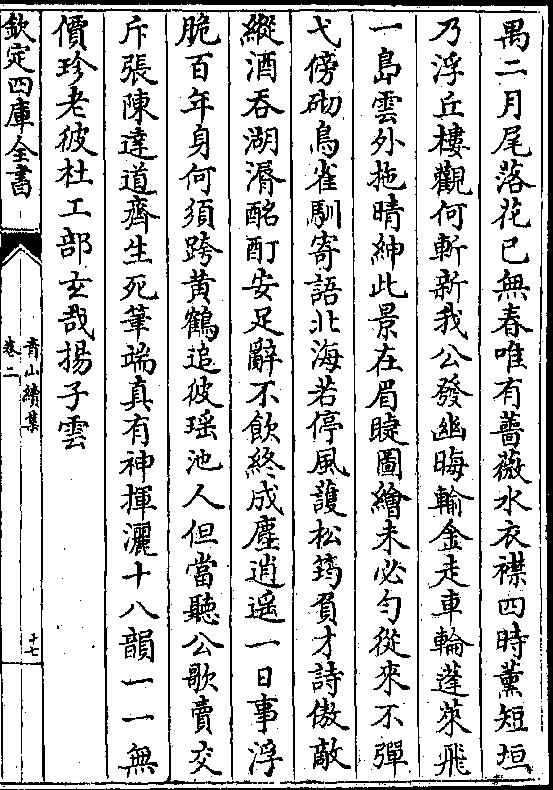 禺二月尾落花已無春唯有薔薇水衣襟四時薰短垣
乃浮丘樓觀何斬新我公發幽晦輸金走車輪蓬萊飛
一島雲外拖晴紳此景在眉睫圖繪未必勻從來不彈
弋傍砌鳥雀馴寄語北海若停風護松筠負才詩傲敵
縱酒吞湖漘酩酊安足辭不飲終成塵逍遥一日事浮
脆百年身何須跨黄鶴追彼瑶池人但當聽公歌賣交
斥張陳達道齊生死筆端真有神揮灑十八韻一一無
價珍老彼杜工部玄哉揚子雲
欽定四庫全書
青山續集
卷二
十七